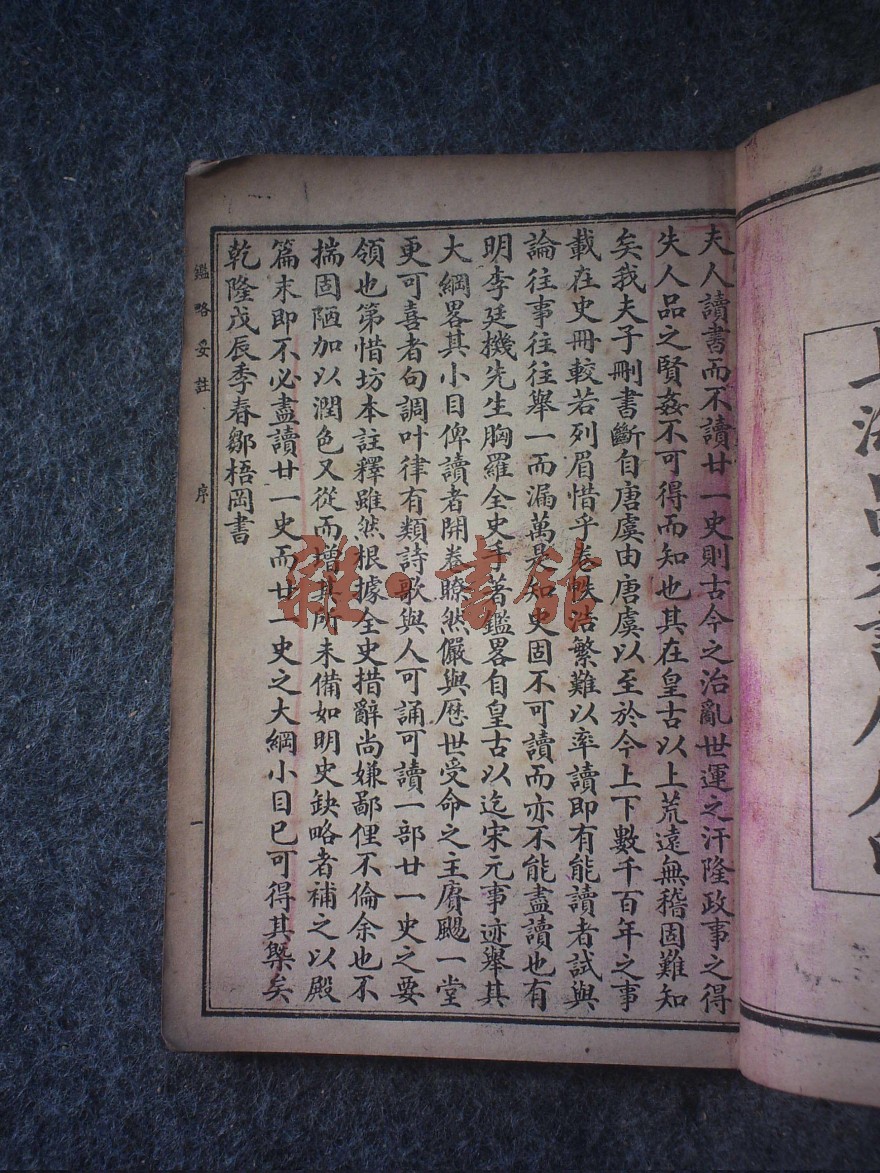 夫人讀書而不讀廿一史則古今之治亂世運之汙隆政事之得
失人品之賢姦不可得而知也其在皇古以上荒遠無稽固難知
矣我夫子刪書斷自唐虞由唐虞以至於今上下數千百年之事
載在史冊較若列眉惜乎卷帙浩繁難以率讀即有能讀者試與
論往事往往舉一而漏萬是知史固不可讀而亦不能盡讀也有
明李廷機先生胸羅全史手著鑑畧自皇古以迄宋元事迹舉其
大綱畧其小目俾讀者開卷瞭然儼與歷世受命之主賡颺一堂
更可喜者句調叶律有類詩歌與人可誦可讀一部廿一史之要
領也第惜坊本註釋雖然根據全史措辭尚嫌鄙俚不倫余也不
揣固陋加以潤色又從而增其所未備如明史缺略者補之以殿
篇末即不必盡讀廿一史而廿一史之大綱小目已可得其槩矣
乾隆戊辰季春鄒梧岡書
鑑略妥註 序 一
雜·書館
上海